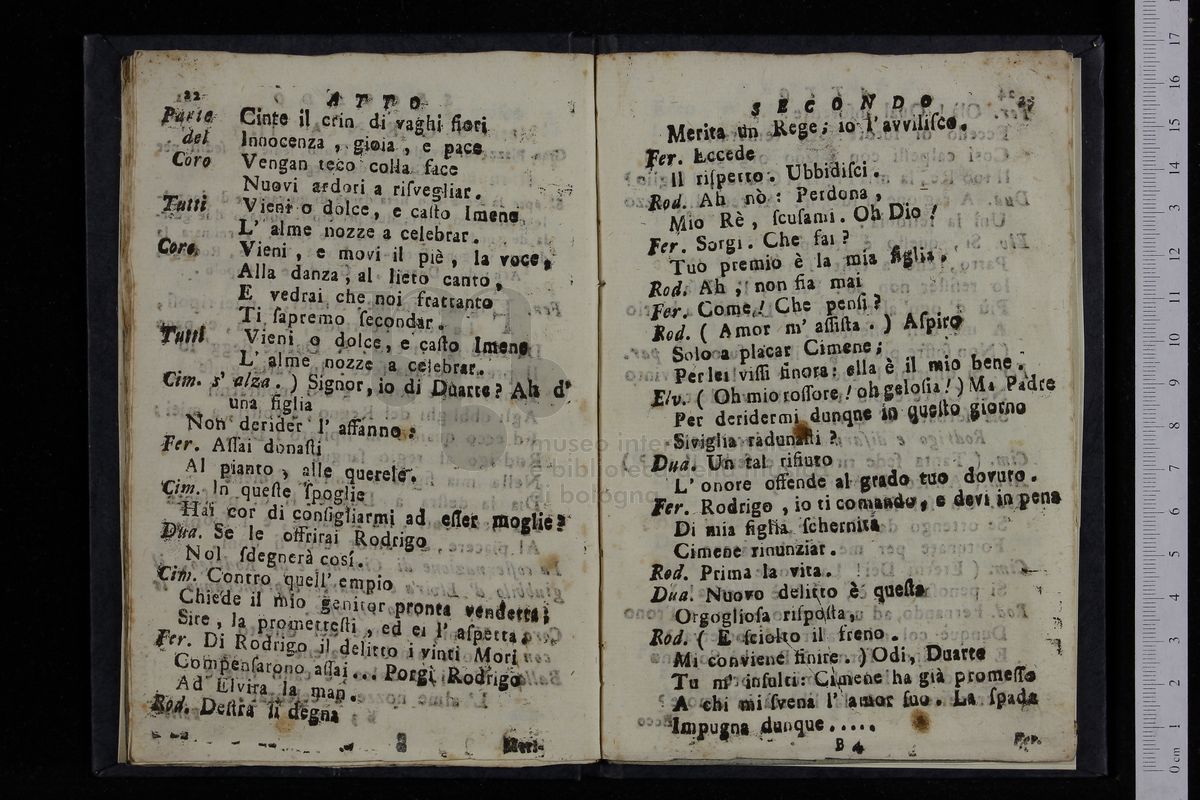 22 ATTO
Parte Cinto il crin di vaghi fiori
del Innocenza , gioia , e pace
Coro Vengan teco colla face
Nuovi ardori a riſvegliar.
Tutti Vieni o dolce, e caſto Imene
L' alme nozze a celebrar.
Coro. Vieni , e movi il piè , la voce,
Alla danza , al lieto canto,
E vedrai che noi frattanto
Ti ſapremo ſecondar.
Tutti Vieni o dolce, e caſto Imene
L' alme nozze a celebrar.
Cim. s' alza. ) Signor, io di Duarte? Ah d'
una figlia
Non derider l' affanno:
Fer. Aſſai donaſti
Al pianto , alle querele.
Cim. In queſte ſpoglie
Hai cor di conſigliarmi ad eſſer moglie?
Dua. Se le offrirai Rodrigo
Nol ſdegnerà così.
Cim. Contro quell' empio
Chiede il mio genitor pronta vendetta;
Sire , la promettesti , ed ei l' aſpetta.
Fer. Di Rodrigo il delitto i vinti Mori
Compenſarono aſſai... Porgi Rodrigo
Ad Elvira la man.
Rod. Deſtra sì degna
Meri-
SECONDO 23
Merita un Rege; io l'avviliſco.
Fer. Eccede
Il riſpetto. Ubbidiſci.
Rod. Ah nò: Perdona,
Mio Rè, ſcuſami. Oh Dio!
Fer. Sorgi. Che fai?
Tuo premio è la mia figlia.
Rod. Ah , non fia mai
Fer. Come! Che penſi?
Rod. ( Amor m' aſſiſta . ) Aſpiro
Solo a placar Cimene;
Per lei viſſi finora: ella è il mio bene.
Elv. ( Oh mio roſſore! oh geloſia! ) Ma Padre
Per deridermi dunque in queſto giorno
Siviglia radunaſti ?
Dua. Un tal rifiuto
L' onore offende al grado tuo dovuto.
Fer. Rodrigo , io ti comando, e devi in pena
Di mia figlia ſchernita
Cimene rinunziar.
Rod. Prima la vita.
Dua. Nuovo delitto è queſta
Orgoglioſa riſpoſta,
Rod. ( E ſciolto il freno.
Mi conviene finire. ) Odi, Duarte
Tu m' inſulti: Cimene ha già promeſſo
A chi mi ſvena l' amor ſuo. La ſpada
Impugna dunque.....
B 4 Fer.
museo inter
e bibliote
di bologna
0 cm 1 2 3 4 5 6 7 8 9 10 11 12 13 14 15 16 17